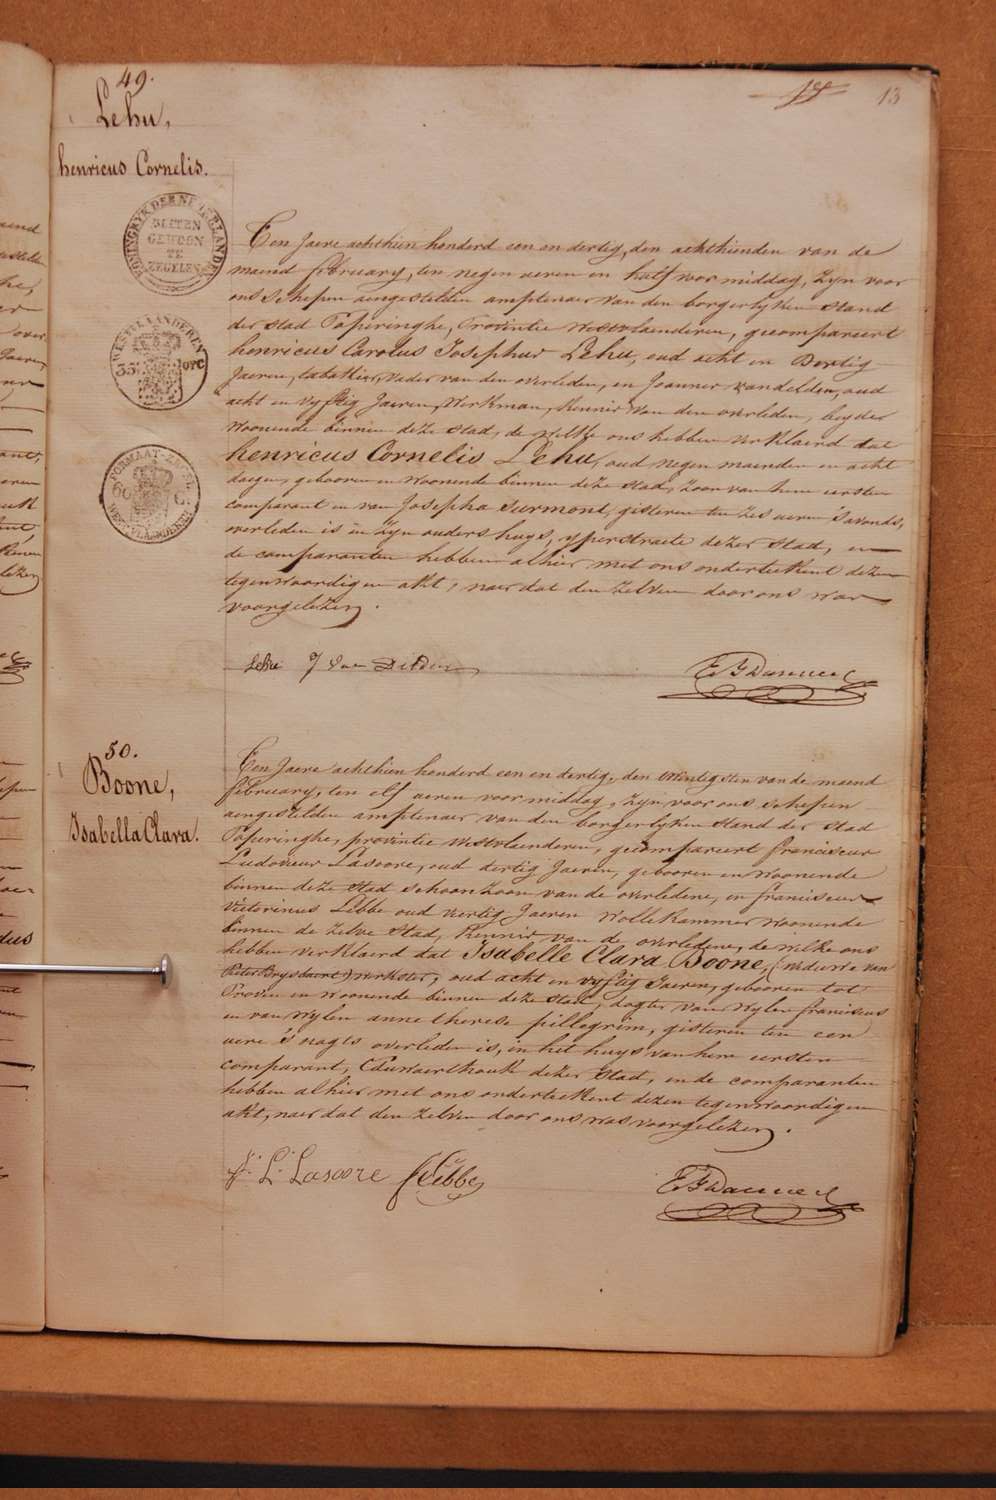 13
49.
Lehu,
henricus Cornelis.
KONINGRYK DER NEDERLANDEN
BUITEN
GEWOON
TE
ZEGELEN
WESTVLAANDEREN
35 OPC
FORMAAT-ZEGEL
60 C.
WESTVLAANDEREN
Ten Jaere achthien honderd een en dertig, den achthienden van de
maend february, ten negen ueren en half voormiddag, zyn voor
ons schepen aengestelden amptenaer van den borgerlyken stand
der stad Poperinghe, Provintie Westvlaenderen, gecompareert
henricus Carolus Josephus Lehu, oud acht en dertig
Jaeren, tabakkier, vader van den overleden, en Joannes vandelden, oud
acht en vyftig Jaeren, Werkman, kennis van den overleden, beyde
woonende binnen deze stad, de welke ons hebben verklaerd dat
henricus Cornelis Lehu, oud negen maenden en acht
dagen, gebooren en woonende binnen deze stad, zoon van hem eersten
comparant en van Josepha Surmont, gisteren ten zes ueren 's avonds,
overleden is in zyn ouders huys, yperstraete dezer stad, en
de comparanten hebben alhier met ons onderteekent dezen
tegenwoordigen akt, naer dat den zelven door ons was
voorgelezen.
Lehu J Van
50.
Boone,
Isabella Clara.
Ten Jaere achthien honderd een en dertig, den twintigsten van de maend
february, ten elf ueren voormiddag, zyn voor ons schepen
aengestelden amptenaer van den borgerlyken stand der stad
Poperinghe, provintie Westvlaenderen, gecompareert franciscus
Ludovicus Lasoore, oud dertig Jaeren, gebooren en woonende
binnen deze stad schoonzoon van de overledene, en franciscus
victorinus Lebbe oud veertig Jaeren wollekammer woonende
binnen de zelve stad, kennis van de overledene, de welke ons
hebben verklaerd dat Isabelle Clara Boone, (weduwe van
Pieter Brysbaert) oud acht en vyftig Jaeren, gebooren tot
Proven en woonende binnen deze stad, dogter van Wylen franciscus
en van Wylen anne therese pillegrim, gisteren ten een
uere 's nagts overleden is, in het huys van hem eersten
comparant, Couwaerthouk dezer stad, en de comparanten
hebben alhier met ons onderteekent dezen tegenwoordigen
akt, naer dat den zelven door ons was voorgelezen.
f. L. Lasoore f Lebbe